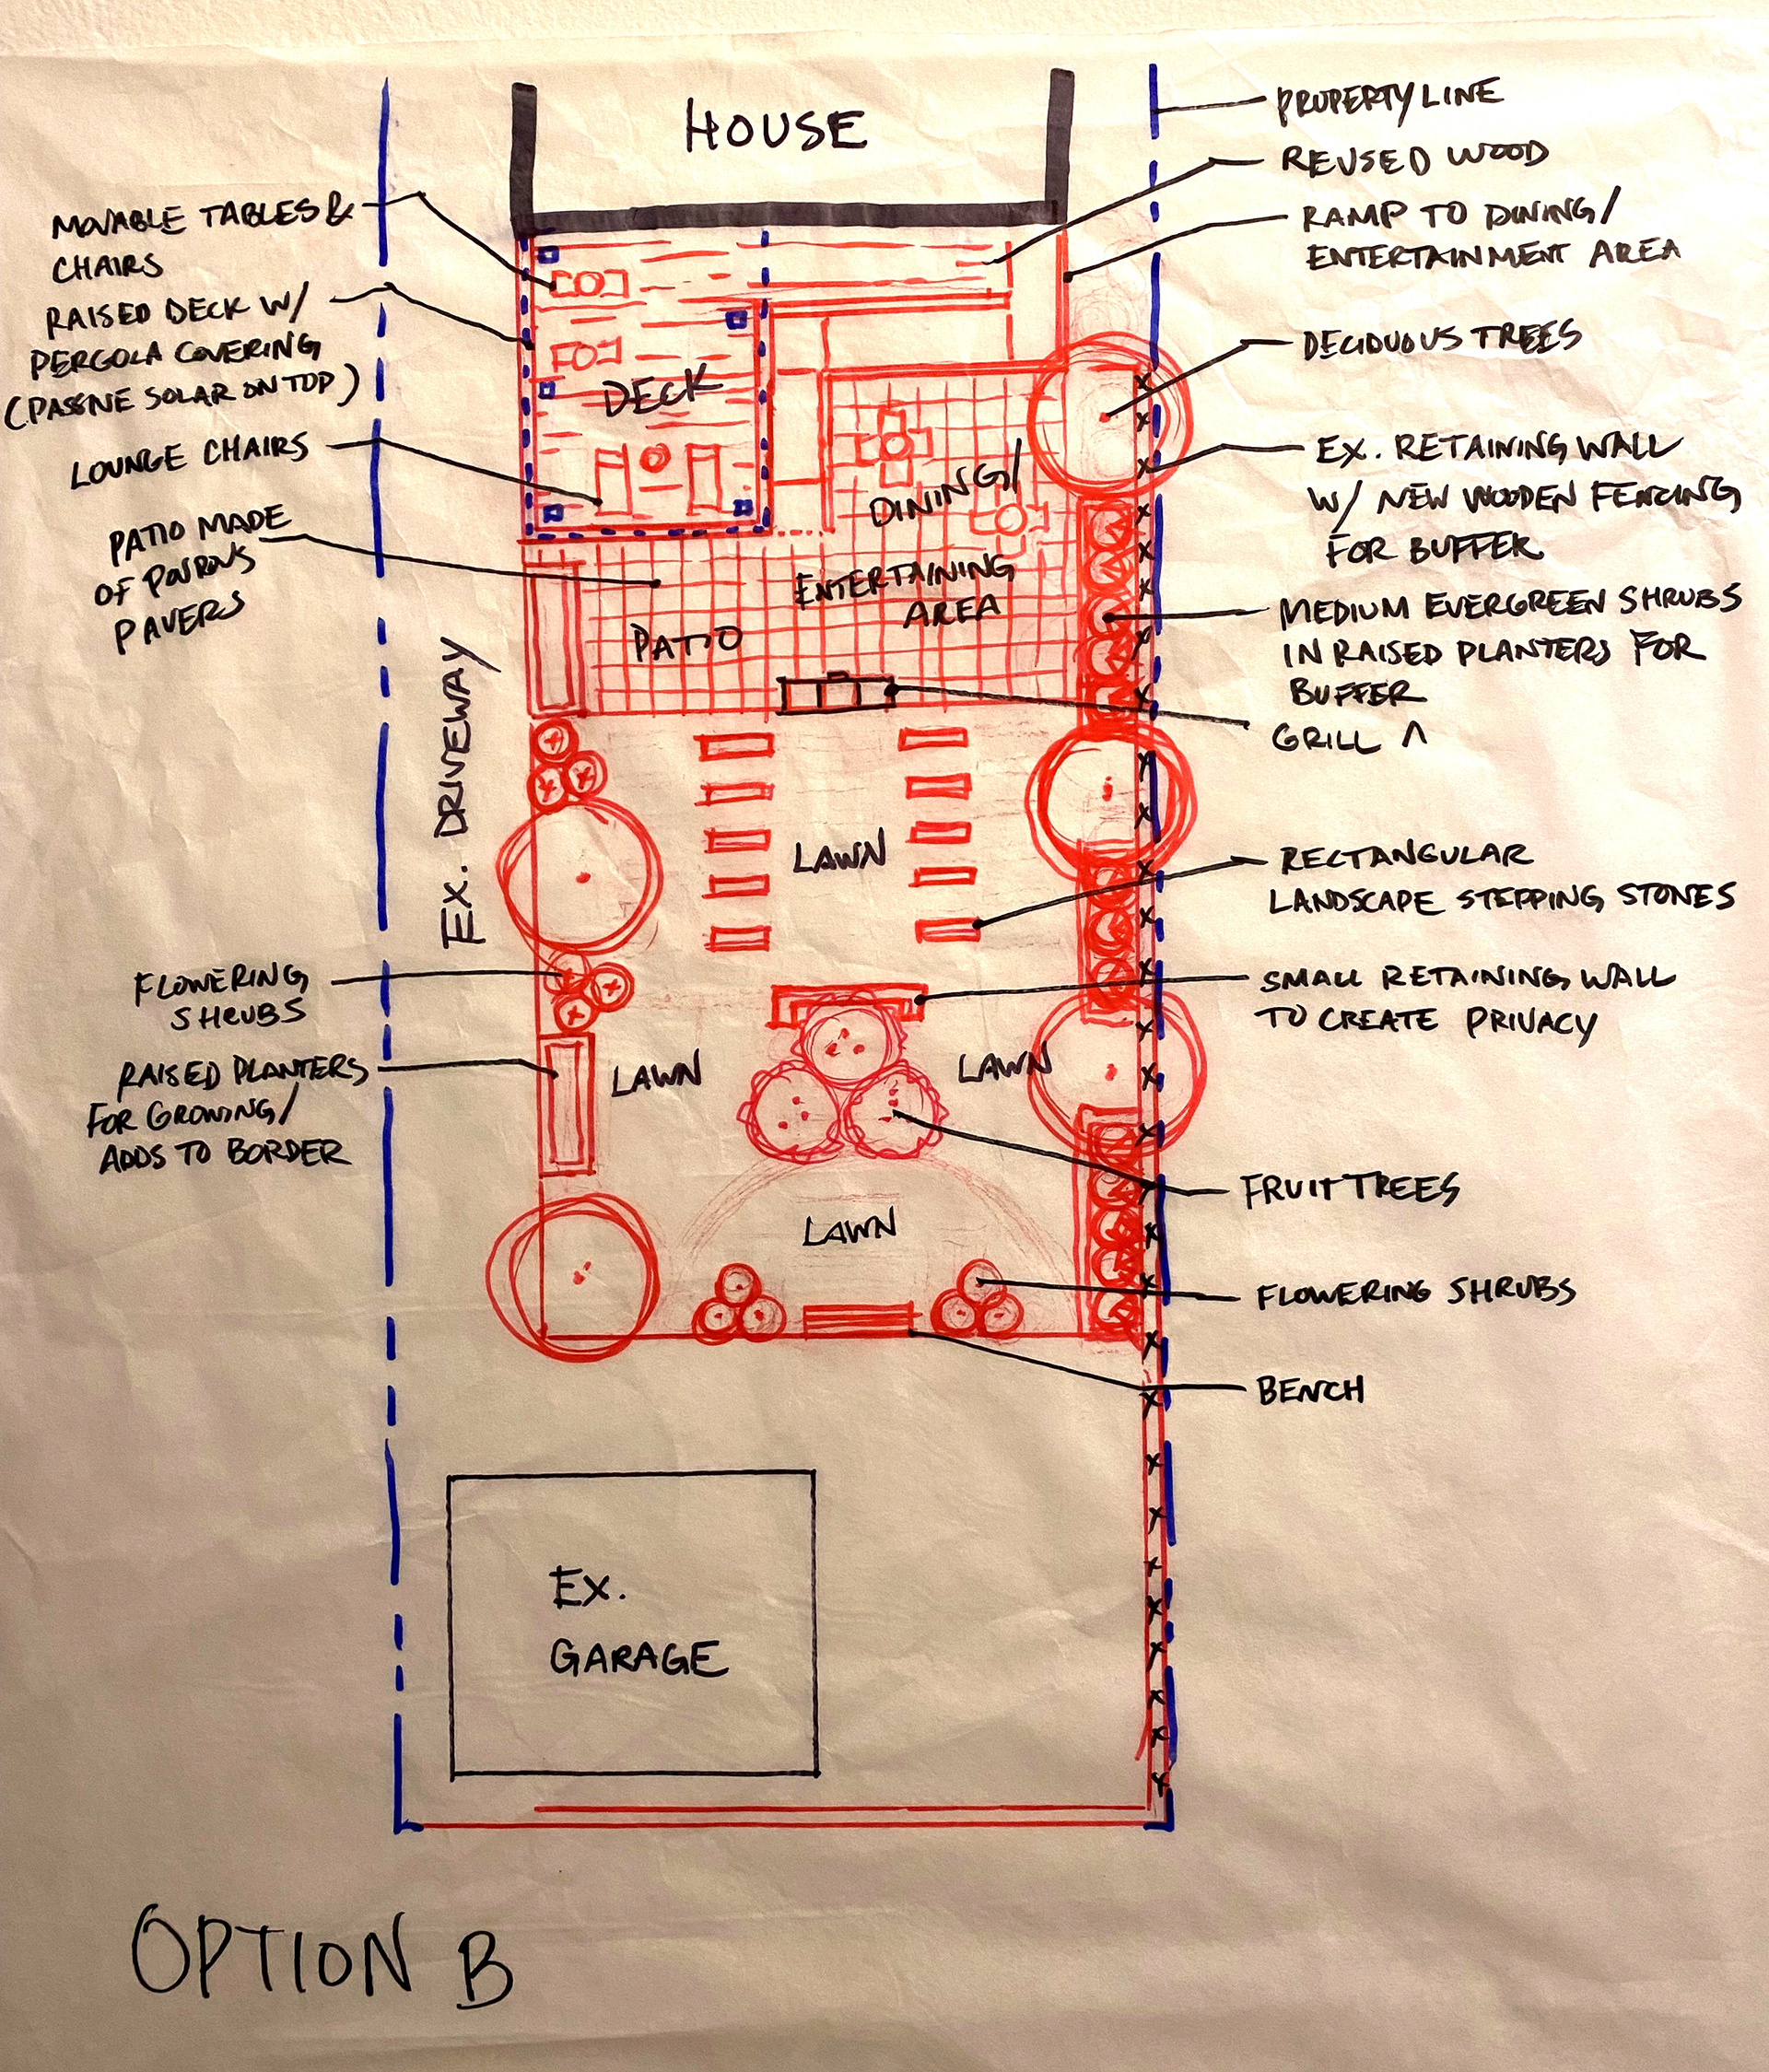 HOUSE
MOVABLE TABLES &
CHAIRS
RAISED DECK W/
PERGOLA COVERING
(PASSIVE SOLAR ON TOP)
LOUNGE CHAIRS
PATIO MADE
OF POROUS
PAVERS
EX. DRIVEWAY
FLOWERING
SHRUBS
RAISED PLANTERS
FOR GROWING/
ADDS TO BORDER
DECK
DINING/
ENTERTAINING
AREA
PATIO
LAWN
LAWN
LAWN
LAWN
PROPERTY LINE
REUSED WOOD
RAMP TO DINING/
ENTERTAINMENT AREA
DECIDUOUS TREES
EX. RETAINING WALL
W/ NEW WOODEN FENCING
FOR BUFFER
MEDIUM EVERGREEN SHRUBS
IN RAISED PLANTERS FOR
BUFFER
GRILL
RECTANGULAR
LANDSCAPE STEPPING STONES
SMALL RETAINING WALL
TO CREATE PRIVACY
FRUIT TREES
FLOWERING SHRUBS
BENCH
EX.
GARAGE
OPTION B